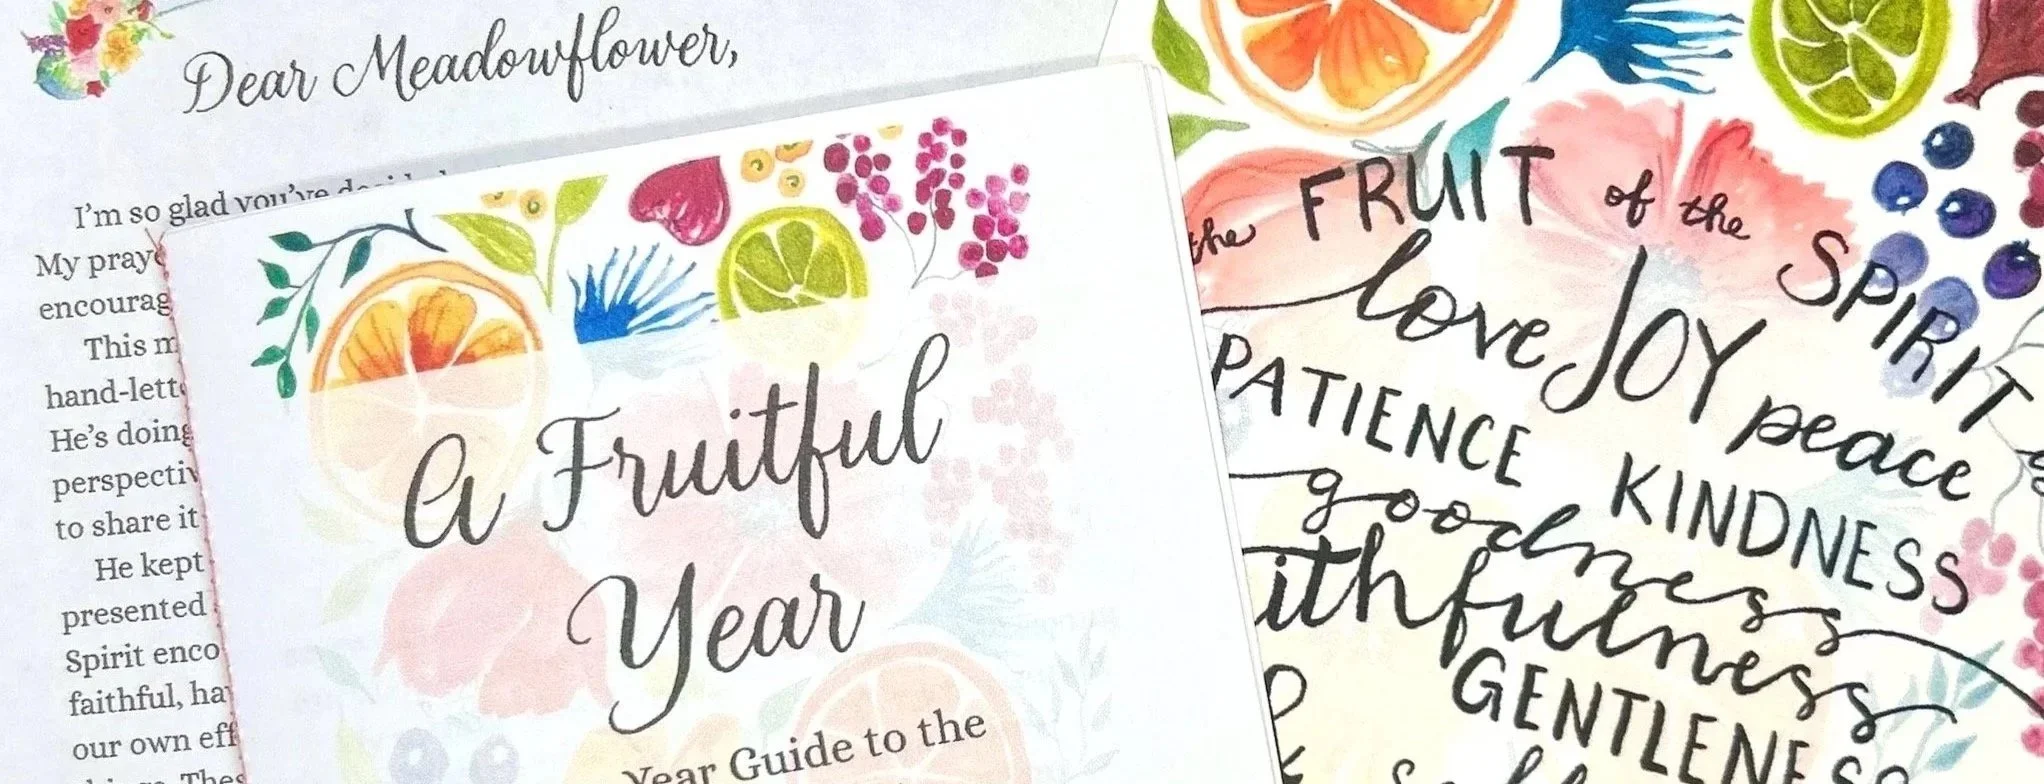 Dear Meadowflower,
I'm so glad you've
My
encourag
This m
hand-lett
He's doing
perspectiv
to share it
He kept
presented
Spirit enco
faithful, ha
our own eff
A Fruitful
Year
Year Guide to the
the FRUIT of the SPIRIT
love JOY peace
PATIENCE KINDNESS
goodness
ithfulness
GENTLENES